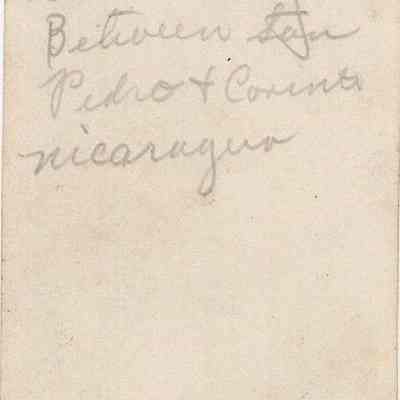 Between San
Pedro + Corinto
nicaragua